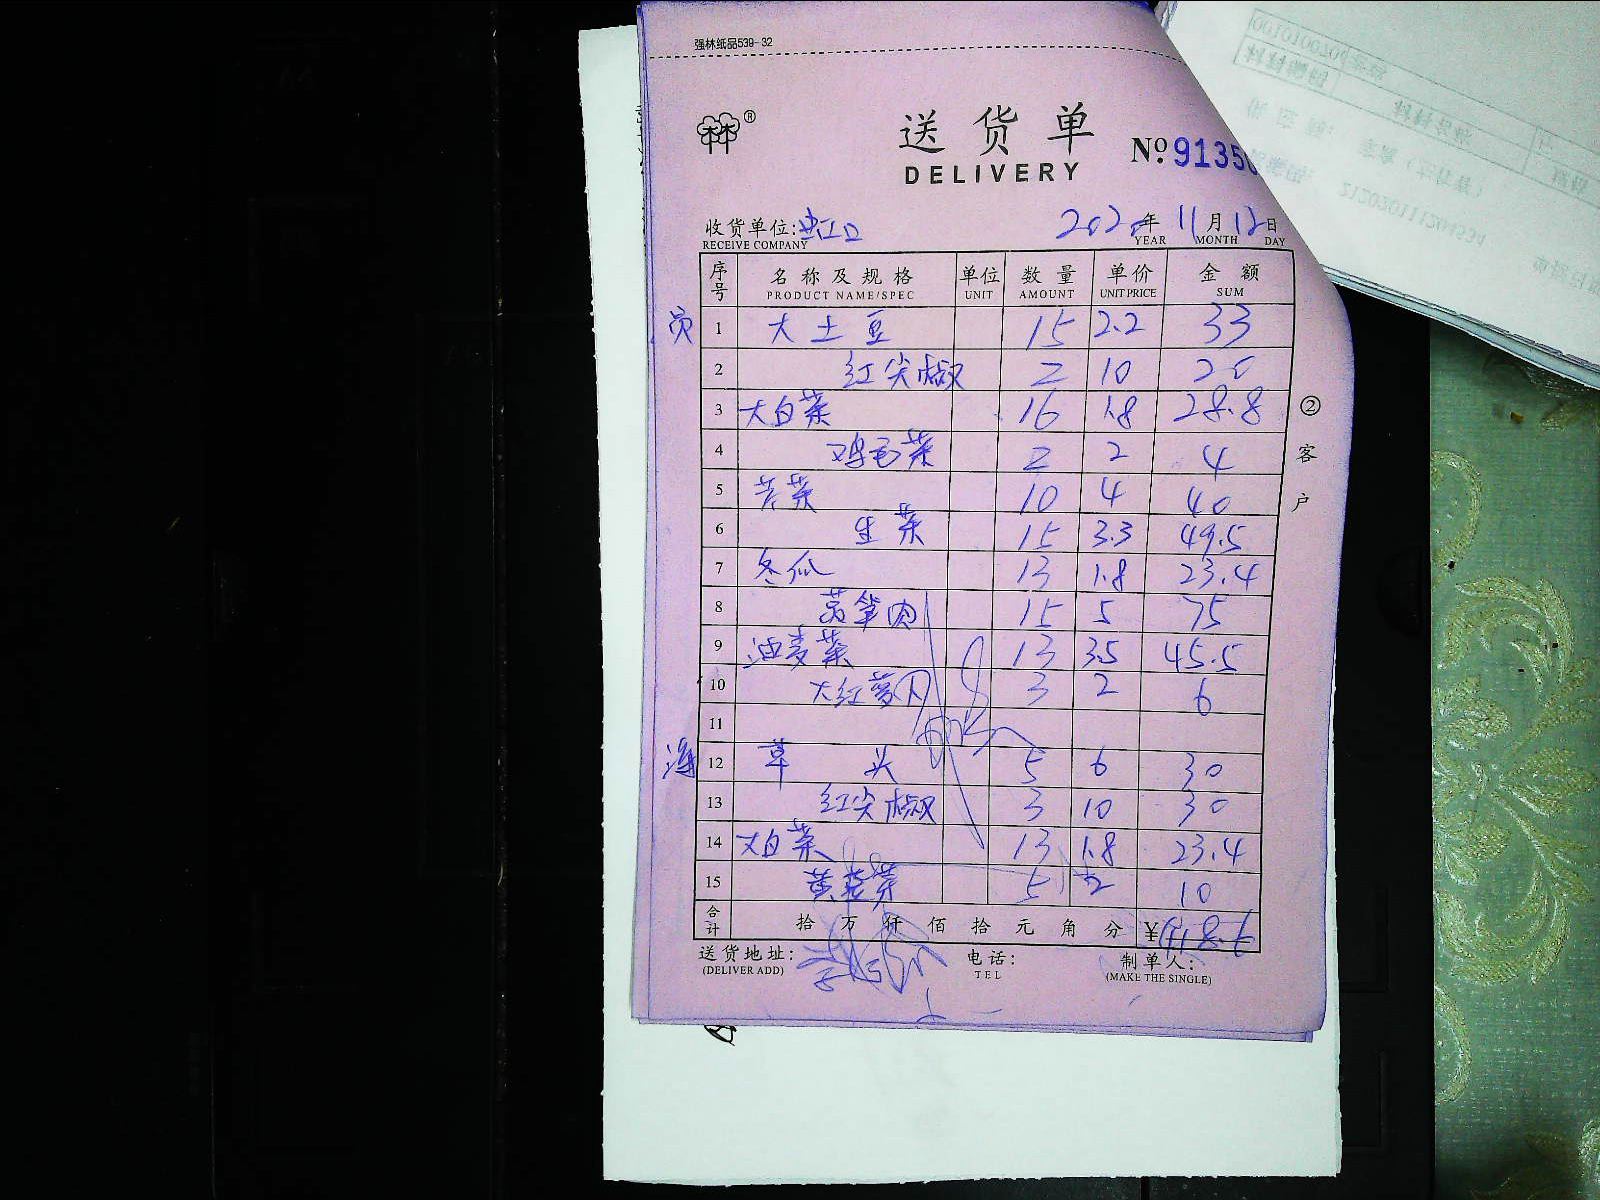 强林纸品539-32
林®
送货单
DELIVERY
№ 9135
收货单位:虹口
RECEIVE COMPANY
2020年11月12日
YEAR MONTH DAY
序号 名称及规格 单位 数量 单价 金额
PRODUCT NAME/SPEC UNIT AMOUNT UNIT PRICE SUM
员 1 大土豆 15 2.2 33
2 红尖椒 2 10 20
3 大白菜 16 1.8 28.8
4 鸡毛菜 2 2 4
5 苦菜 10 4 40
6 生菜 15 3.3 49.5
7 冬瓜 13 1.8 23.4
8 莴笋肉 15 5 75
9 油麦菜 13 3.5 45.5
10 大红萝卜 3 2 6
11
12 草头 5 6 30
13 红尖椒 3 10 30
14 大白菜 13 1.8 23.4
15 黄豆芽 5 2 10
合计 拾万仟佰拾元角分 ¥
②客户
送货地址:
(DELIVER ADD)
电话:
TEL
制单人:
(MAKE THE SINGLE)